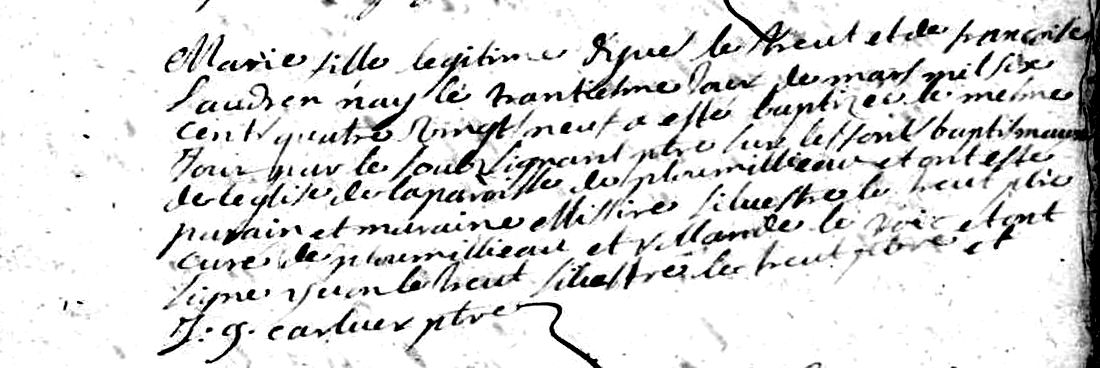 Marie fille legitime d'yve le treut et de francoise
Laudren nay le trantieme Jour de mars mil six
cent quatre vingt neuf a esté baptizee le meme
Jour par le soubsignant ptre sur les font baptismaux
de leglise de la paroisse de ploumillieau et ont esté
parain et maraine Missire silvestre le treut ptre
curé de ploumillieau et le et ont
signe yvon le treut silvestre le treut pbre et
J: g. carluer ptre